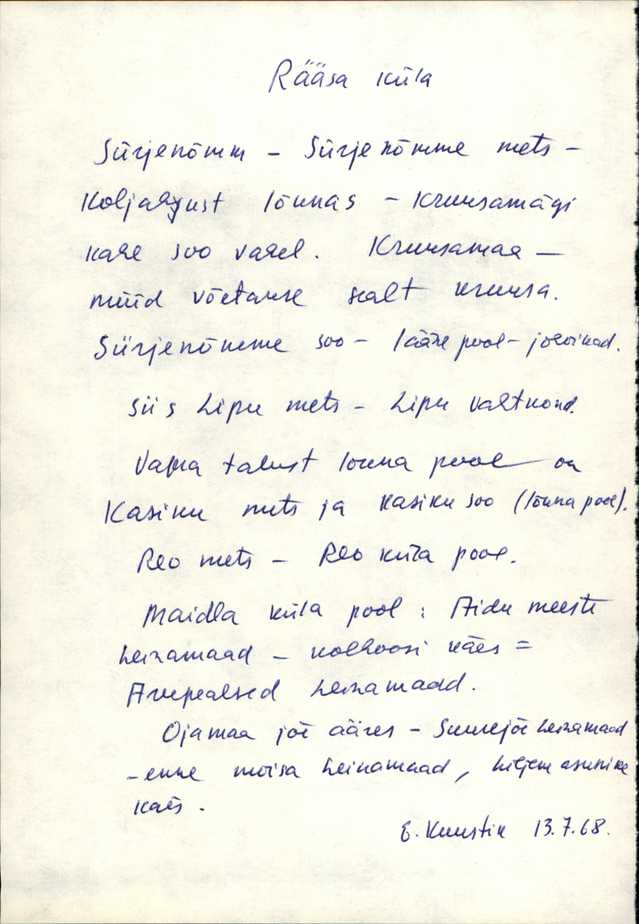 Rääsa küla
Sürjenõmm - Sürjenõmme mets -
Koljaljust lõunas - Kruusamägi
kahe soo vahel. Kruusamaa -
nüüd võetakse sealt kruusa.
Sürjenõmme soo - lääne pool -
Siis Lipu mets - Lipu valtkond.
Vahra talust lõuna pool on
Kasiku mets ja Kasiku soo (lõuna pool).
Reo mets - Reo küla pool.
Maidla küla pool : Aidu meeste
heinamaad - kolhoosi käes =
Arupealsed heinamaad.
Ojamaa jõe ääres - Suurejõe heinamaad
- enne mõisa heinamaad, hiljem asunike
käes.
E. Kuustik 13.7.68.